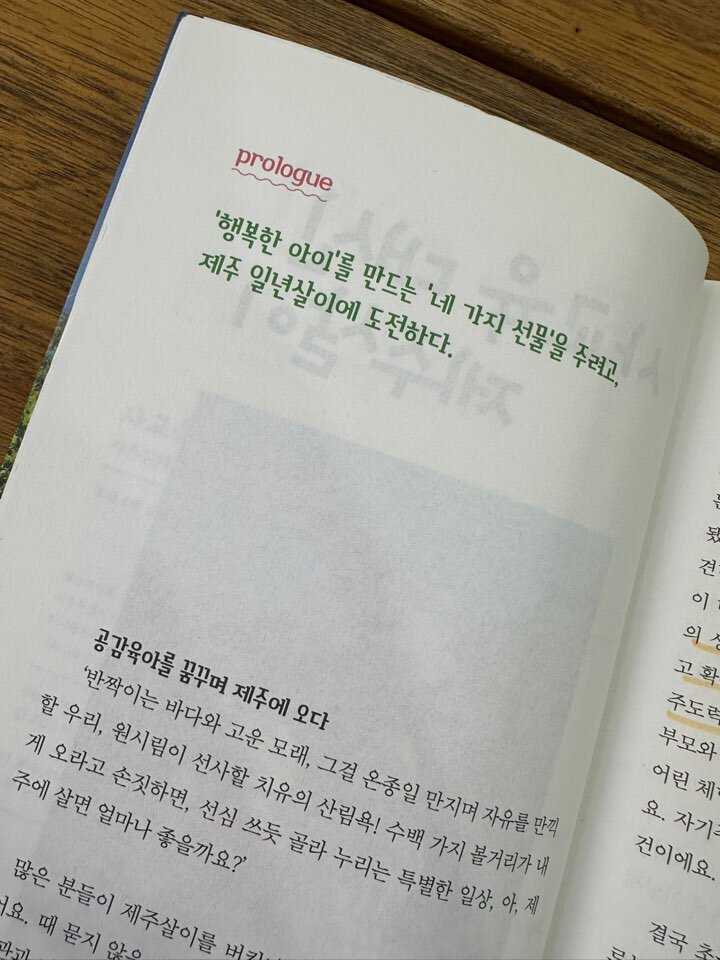 prologue
'행복한 아이'를 만드는 '네 가지 선물'을 주려고,
제주 일년살이에 도전하다.
공감육아를 꿈꾸며 제주에 오다
'반짝이는 바다와 고운 모래, 그걸 온종일 만지며 자유를 만끽
할 우리, 원시림이 선사할 치유의 산림욕! 수백 가지 볼거리가 내
게 오라고 손짓하면, 선심 쓰듯 골라 누리는 특별한 일상, 아, 제
주에 살면 얼마나 좋을까요?'
많은 분들이 제주살이를
때 묻지 않은
견
이
의
고 확
주도력
부모와
어린 체
요. 자기
건이에요.
결국 초